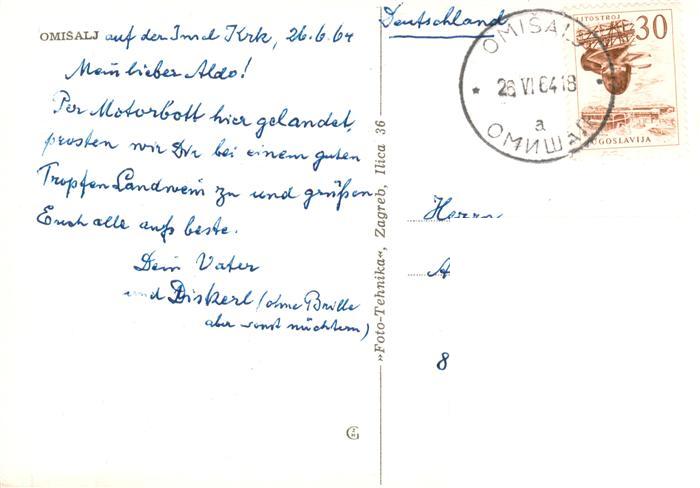 OMIŠALJ auf der Insel Krk, 26.6.64
Mein lieber Aldo!
Per Motorbott hier gelandet,
prosten wir Dir bei einem guten
Tropfen Landwein zu und grüßen
Euch alle aufs beste.
Dein Vater
und Diskerl (ohne Brille
aber sonst nüchtern)
»Foto-Tehnika«, Zagreb, Ilica 36
Deutschland
OMIŠALJ
26 VI 64 18
a
ОМИШАЉ
LITOSTROJ
30
JUGOSLAVIJA
Herrn
A
8